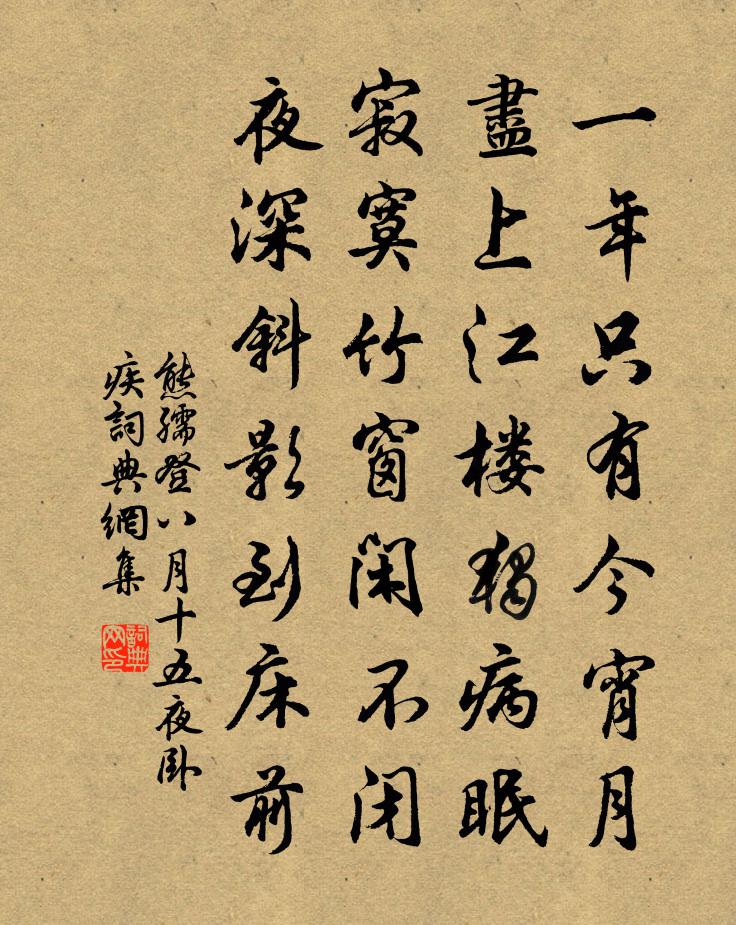 一年只有今宵月
盡上江楼獨病眠
寂寞竹窗閑不闭
夜深斜影到床前
熊孺登八月十五夜卧
疾詞典網集
詞典
网印